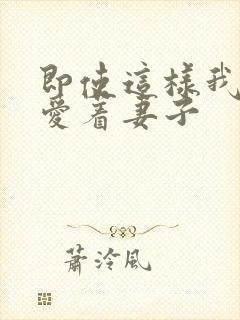 即使這樣我
愛着妻子
蕭泠風